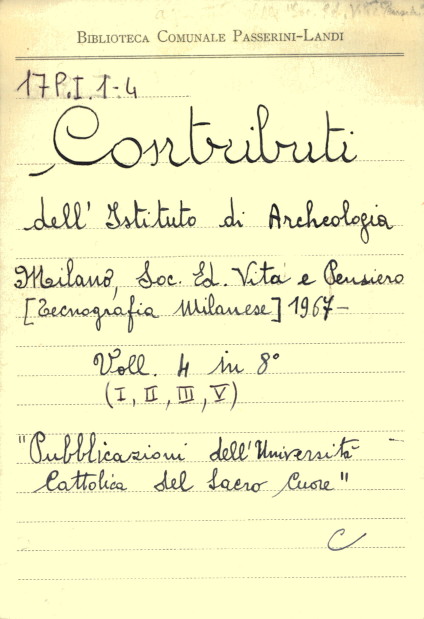 BIBLIOTECA COMUNALE PASSERINI-LANDI
17P.I.1-4
Contributi
dell' Istituto di Archeologia
Milano, Soc. Ed. Vita e Pensiero
[Tecnografia Milanese] 1967-
Voll. 4 in 8°
(I, II, III, V)
"Pubblicazioni dell'Università
Cattolica del Sacro Cuore"
C